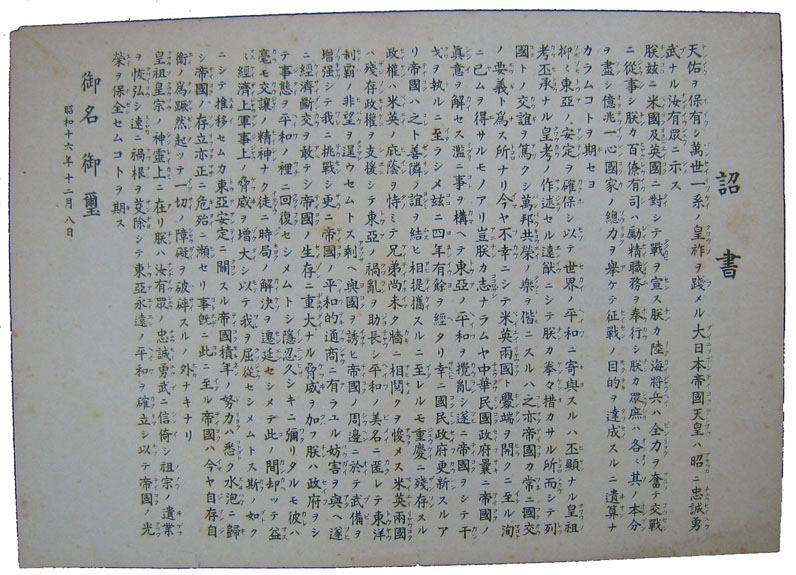 詔書
天佑ヲ保有シ萬世一系ノ皇祚ヲ踐メル大日本帝國天皇ハ昭ニ忠誠勇
武ナル汝有眾ニ示ス
朕茲ニ米國及英國ニ對シテ戰ヲ宣ス朕カ陸海將兵ハ全力ヲ奮テ交戰
ニ從事シ朕カ百僚有司ハ勵精職務ヲ奉行シ朕カ眾庶ハ各〻其ノ本分
ヲ盡シ億兆一心國家ノ總力ヲ擧ケテ征戰ノ目的ヲ達成スルニ遺算ナ
カラムコトヲ期セヨ
抑〻東亞ノ安定ヲ確保シ以テ世界ノ平和ニ寄與スルハ丕顯ナル皇祖
考丕承ナル皇考ノ作述セル遠猷ニシテ朕カ拳々措カサル所而シテ列
國トノ交誼ヲ篤クシ萬邦共榮ノ樂ヲ偕ニスルハ之亦帝國カ常ニ國交
ノ要義ト爲ス所ナリ今ヤ不幸ニシテ米英兩國ト釁端ヲ開クニ至ル洵
ニ已ムヲ得サルモノアリ豈朕カ志ナラムヤ中華民國政府曩ニ帝國ノ
眞意ヲ解セス濫ニ事ヲ構ヘテ東亞ノ平和ヲ攪亂シ遂ニ帝國ヲシテ干
戈ヲ執ルニ至ラシメ茲ニ四年有餘ヲ經タリ幸ニ國民政府更新スルア
リ帝國ハ之ト善隣ノ誼ヲ結ヒ相提攜スルニ至レルモ重慶ニ殘存スル
政權ハ米英ノ庇蔭ヲ恃ミテ兄弟尚未タ牆ニ相鬩クヲ悛メス米英兩國
ハ殘存政權ヲ支援シテ東亞ノ禍亂ヲ助長シ平和ノ美名ニ匿レテ東洋
制覇ノ非望ヲ逞ウセムトス剩ヘ與國ヲ誘ヒ帝國ノ周邊ニ於テ武備ヲ
增强シテ我ニ挑戰シ更ニ帝國ノ平和的通商ニ有ラユル妨害ヲ與ヘ遂
ニ經濟斷交ヲ敢テシ帝國ノ生存ニ重大ナル脅威ヲ加フ朕ハ政府ヲシ
テ事態ヲ平和ノ裡ニ回復セシメムトシ隱忍久シキニ彌リタルモ彼ハ
毫モ交讓ノ精神ナク徒ニ時局ノ解決ヲ遷延セシメテ此ノ間却ツテ益
〻經濟上軍事上ノ脅威ヲ增大シ以テ我ヲ屈從セシメムトス斯ノ如ク
ニシテ推移セムカ東亞安定ニ關スル帝國積年ノ努力ハ悉ク水泡ニ歸
シ帝國ノ存立亦正ニ危殆ニ瀕セリ事旣ニ此ニ至ル帝國ハ今ヤ自存自
衞ノ爲蹶然起ツテ一切ノ障礙ヲ破碎スルノ外ナキナリ
皇祖皇宗ノ神靈上ニ在リ朕ハ汝有眾ノ忠誠勇武ニ信倚シ祖宗ノ遺業
ヲ恢弘シ速ニ禍根ヲ芟除シテ東亞永遠ノ平和ヲ確立シ以テ帝國ノ光
榮ヲ保全セムコトヲ期ス
御名御璽
昭和十六年十二月八日